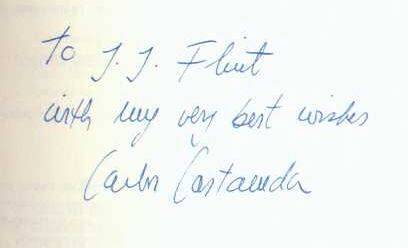 To J. J. Flint
with my very best wishes
Carlos Castaneda